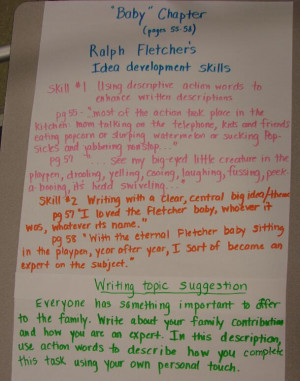 "Baby" Chapter
(pages 55-58)
Ralph Fletcher's
Idea development skills
Skill #1 Using descriptive action words to
enhance written descriptions
pg 55 - "most of the action took place in the
kitchen mom talking on the telephone, kids and friends
eating popcorn or slurping watermelon or sucking Pop-
sicles and yabbering nonstop..."
pg 57 "... see my big-eyed little creature in the
playpen, drooling, yelling, cooing, laughing, fussing, peek-
a-booing, its head swiveling..."
Skill #2 Writing with a clear, central big idea/theme
pg 57 "I loved the Fletcher baby, whoever it
was, whatever its name."
pg 58 "With the eternal Fletcher baby sitting
in the playpen, year after year, I sort of became an
expert on the subject."
Writing topic suggestion
Everyone has something important to offer
to the family. Write about your family contribution
and how you are an expert. In this description,
use action words to describe how you complete
this task using your own personal touch.